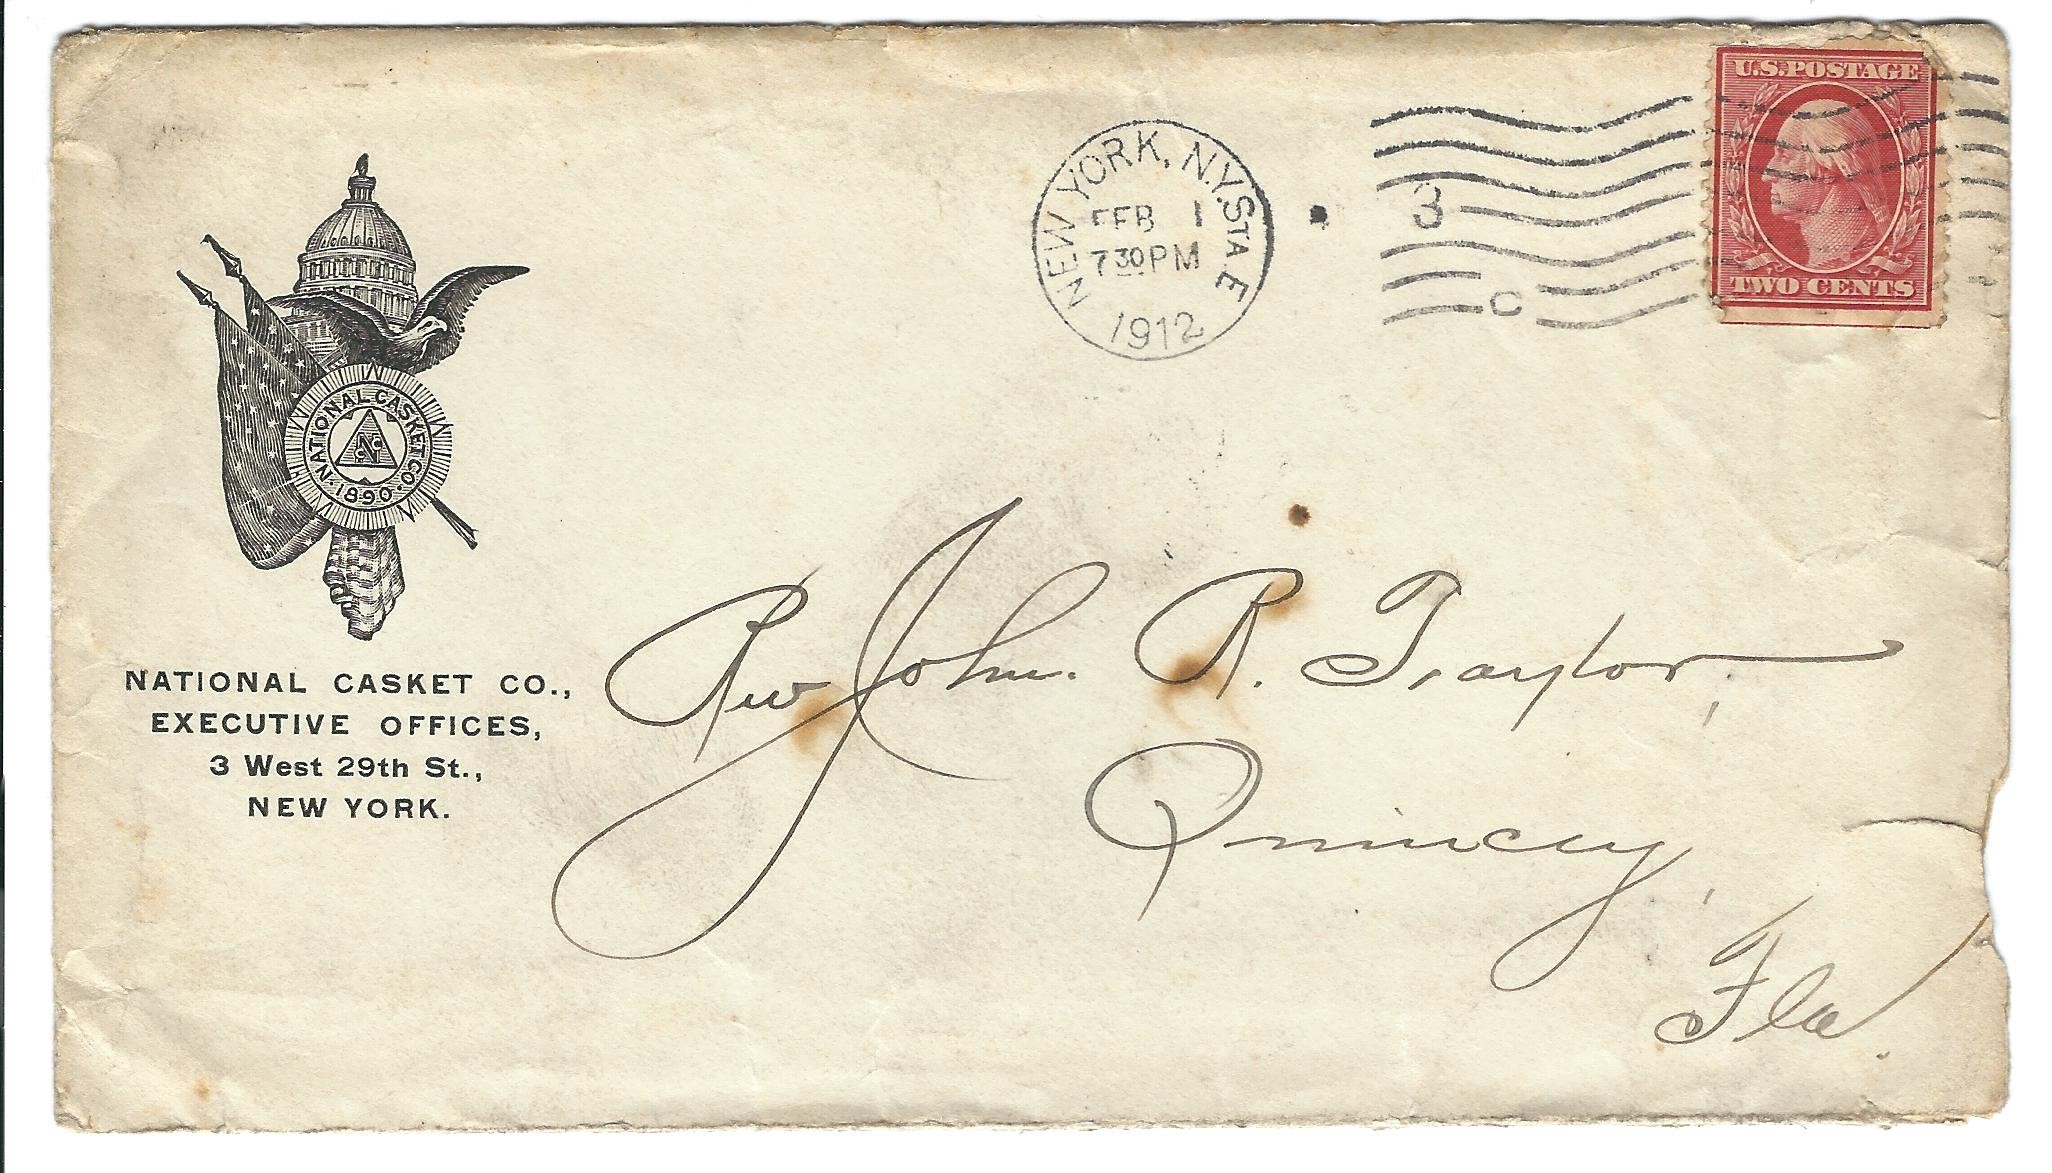 NATIONAL CASKET CO.
1890
NATIONAL CASKET CO.,
EXECUTIVE OFFICES,
3 West 29th St.,
NEW YORK.
NEW YORK, N.Y. STA. E
FEB 1
7 30 PM
1912
3
C
U.S. POSTAGE
TWO CENTS
Rev John. R. Taylor,
Quincy,
Fla.